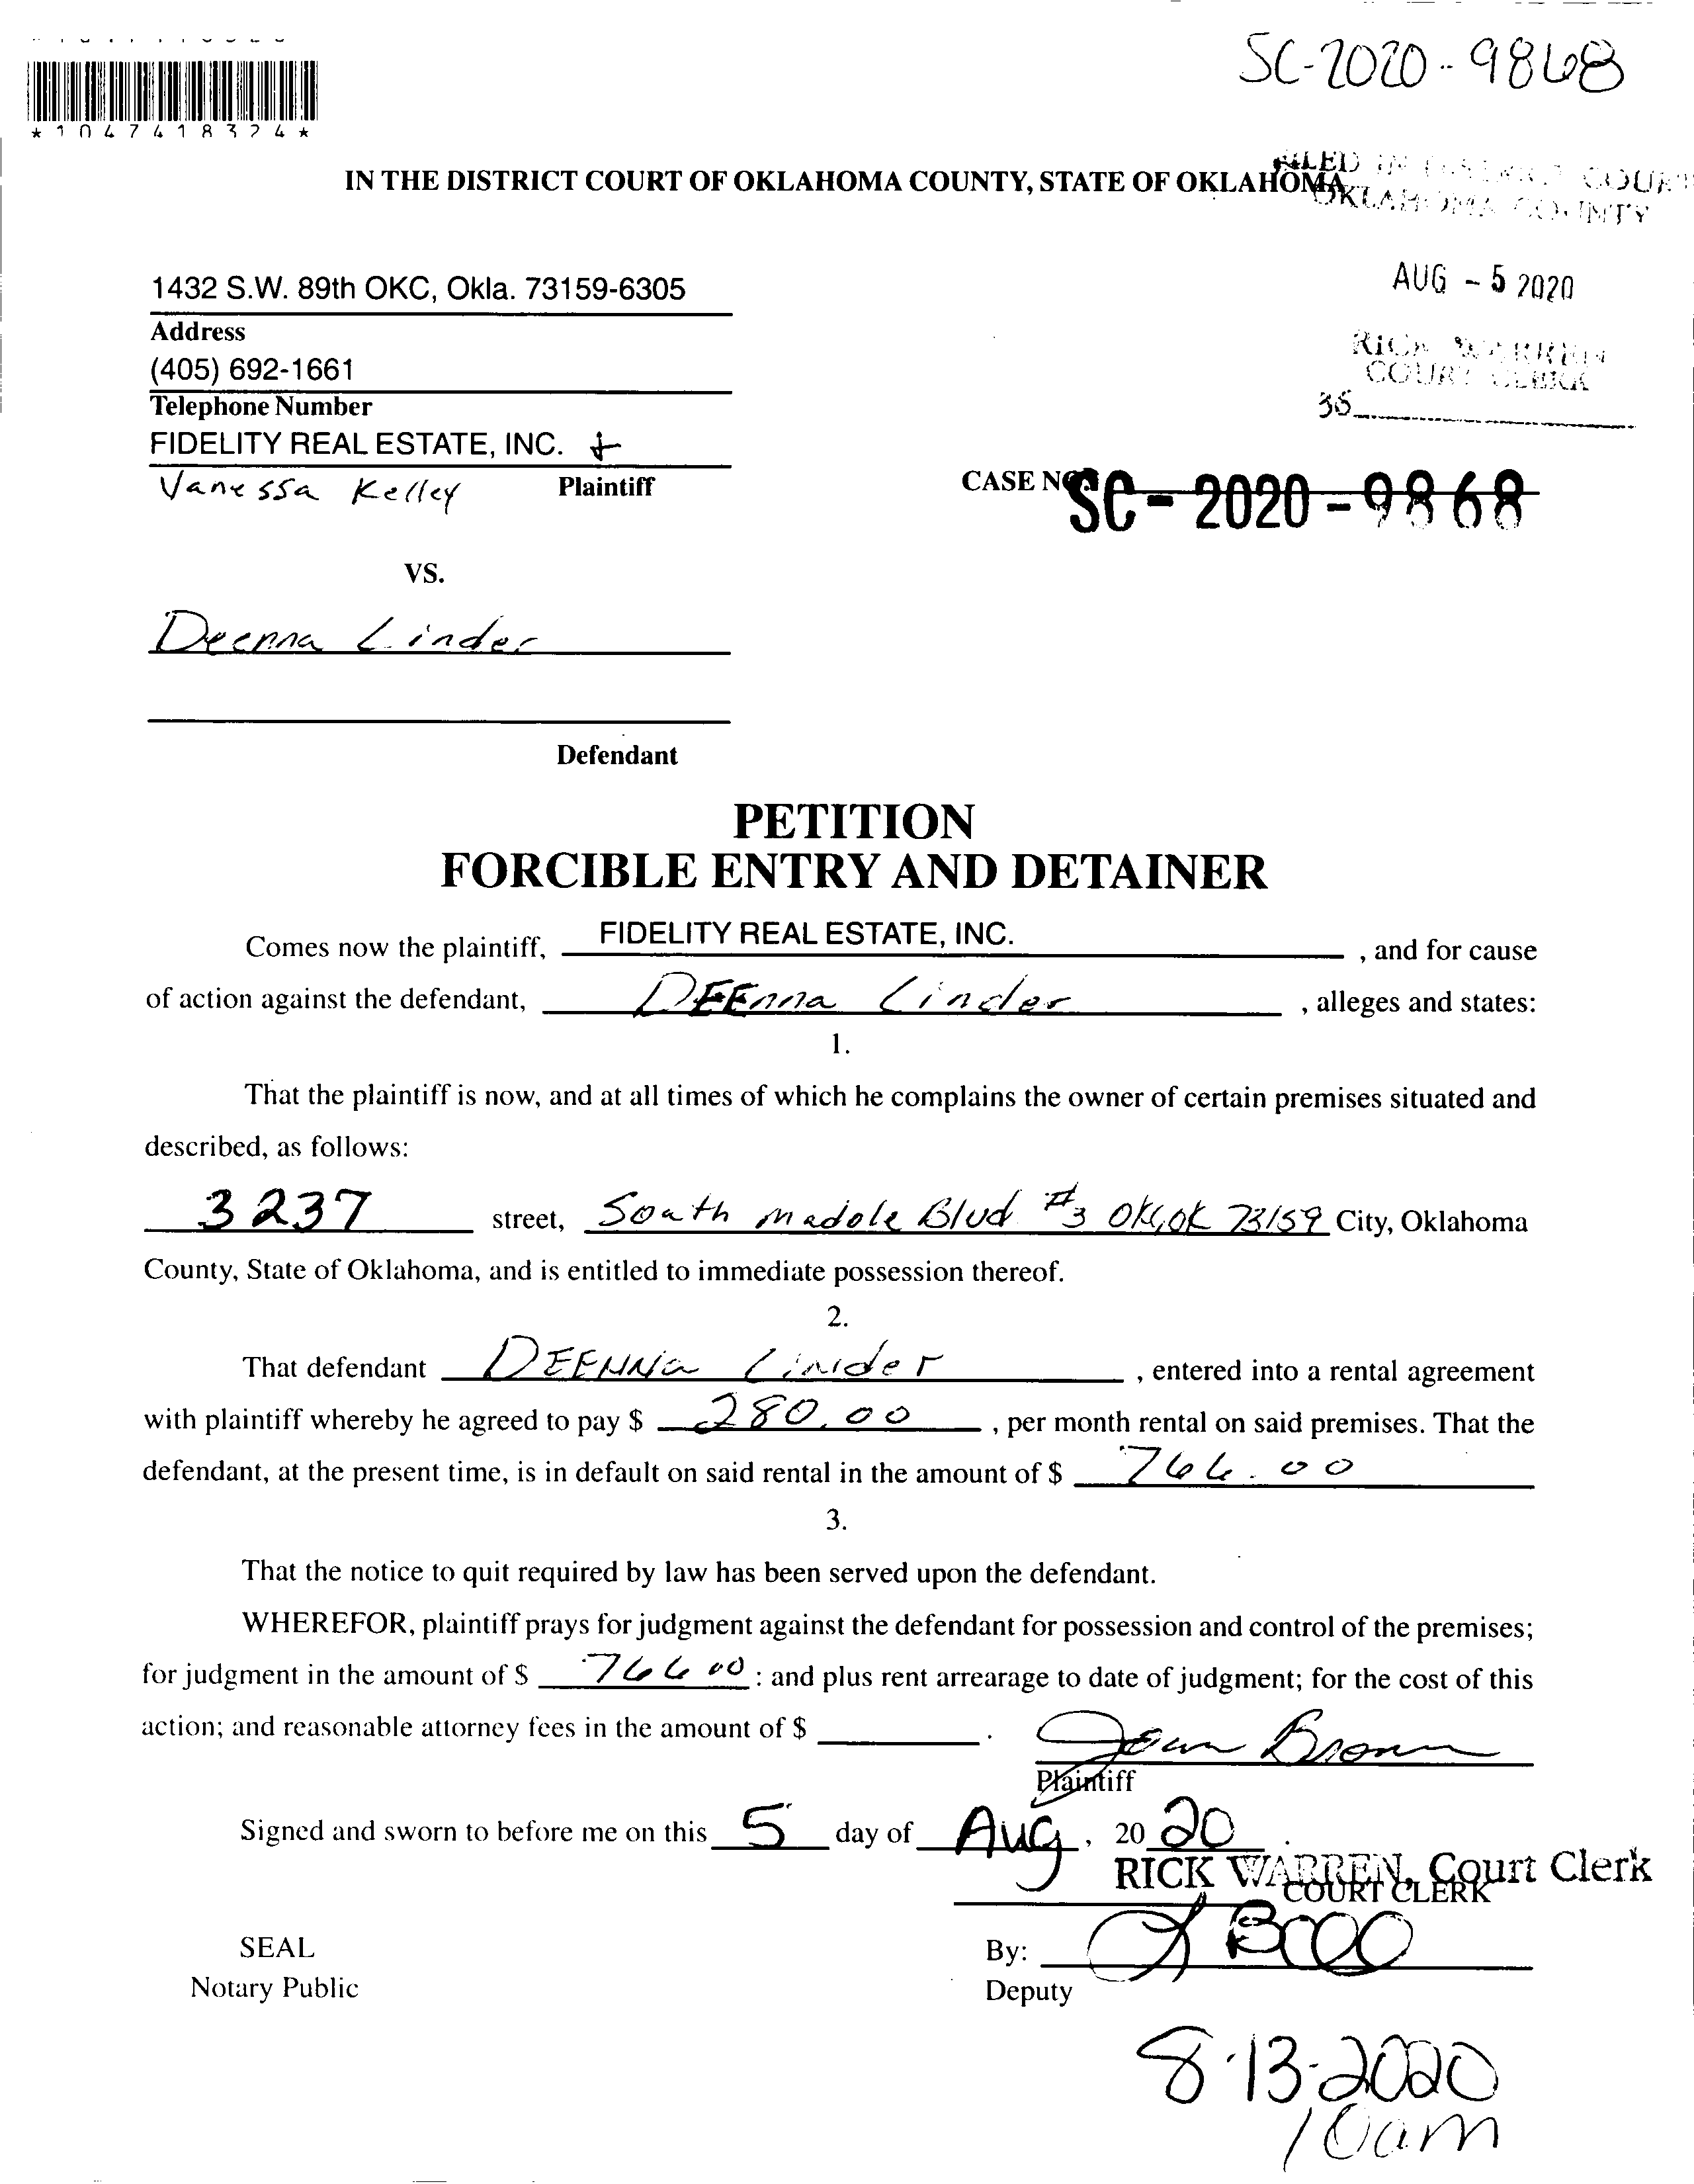 SC-2020-9868
*1047418324*
FILED IN DISTRICT COURT
OKLAHOMA COUNTY
IN THE DISTRICT COURT OF OKLAHOMA COUNTY, STATE OF OKLAHOMA
AUG - 5 2020
RICK WARREN
COURT CLERK
36
1432 S.W. 89th OKC, Okla. 73159-6305
Address
(405) 692-1661
Telephone Number
FIDELITY REAL ESTATE, INC. +
Vanessa Kelley Plaintiff
CASE NO. SC - 2020 - 9868
VS.
Deenna Linder
Defendant
PETITION
FORCIBLE ENTRY AND DETAINER
Comes now the plaintiff, FIDELITY REAL ESTATE, INC. , and for cause
of action against the defendant, DEEnna Linder , alleges and states:
1.
That the plaintiff is now, and at all times of which he complains the owner of certain premises situated and
described, as follows:
3237 street, South madole Blvd #3 OKC, OK 73159 City, Oklahoma
County, State of Oklahoma, and is entitled to immediate possession thereof.
2.
That defendant DEENNa Linder , entered into a rental agreement
with plaintiff whereby he agreed to pay $ 280.00 , per month rental on said premises. That the
defendant, at the present time, is in default on said rental in the amount of $ 766.00
3.
That the notice to quit required by law has been served upon the defendant.
WHEREFOR, plaintiff prays for judgment against the defendant for possession and control of the premises;
for judgment in the amount of $ 766 00 : and plus rent arrearage to date of judgment; for the cost of this
action; and reasonable attorney fees in the amount of $ .
Joan Brown
Plaintiff
Signed and sworn to before me on this 5 day of Aug , 20 20 .
RICK WARREN, Court Clerk
COURT CLERK
SEAL
By:
Notary Public
Deputy
8-13-2020
10am